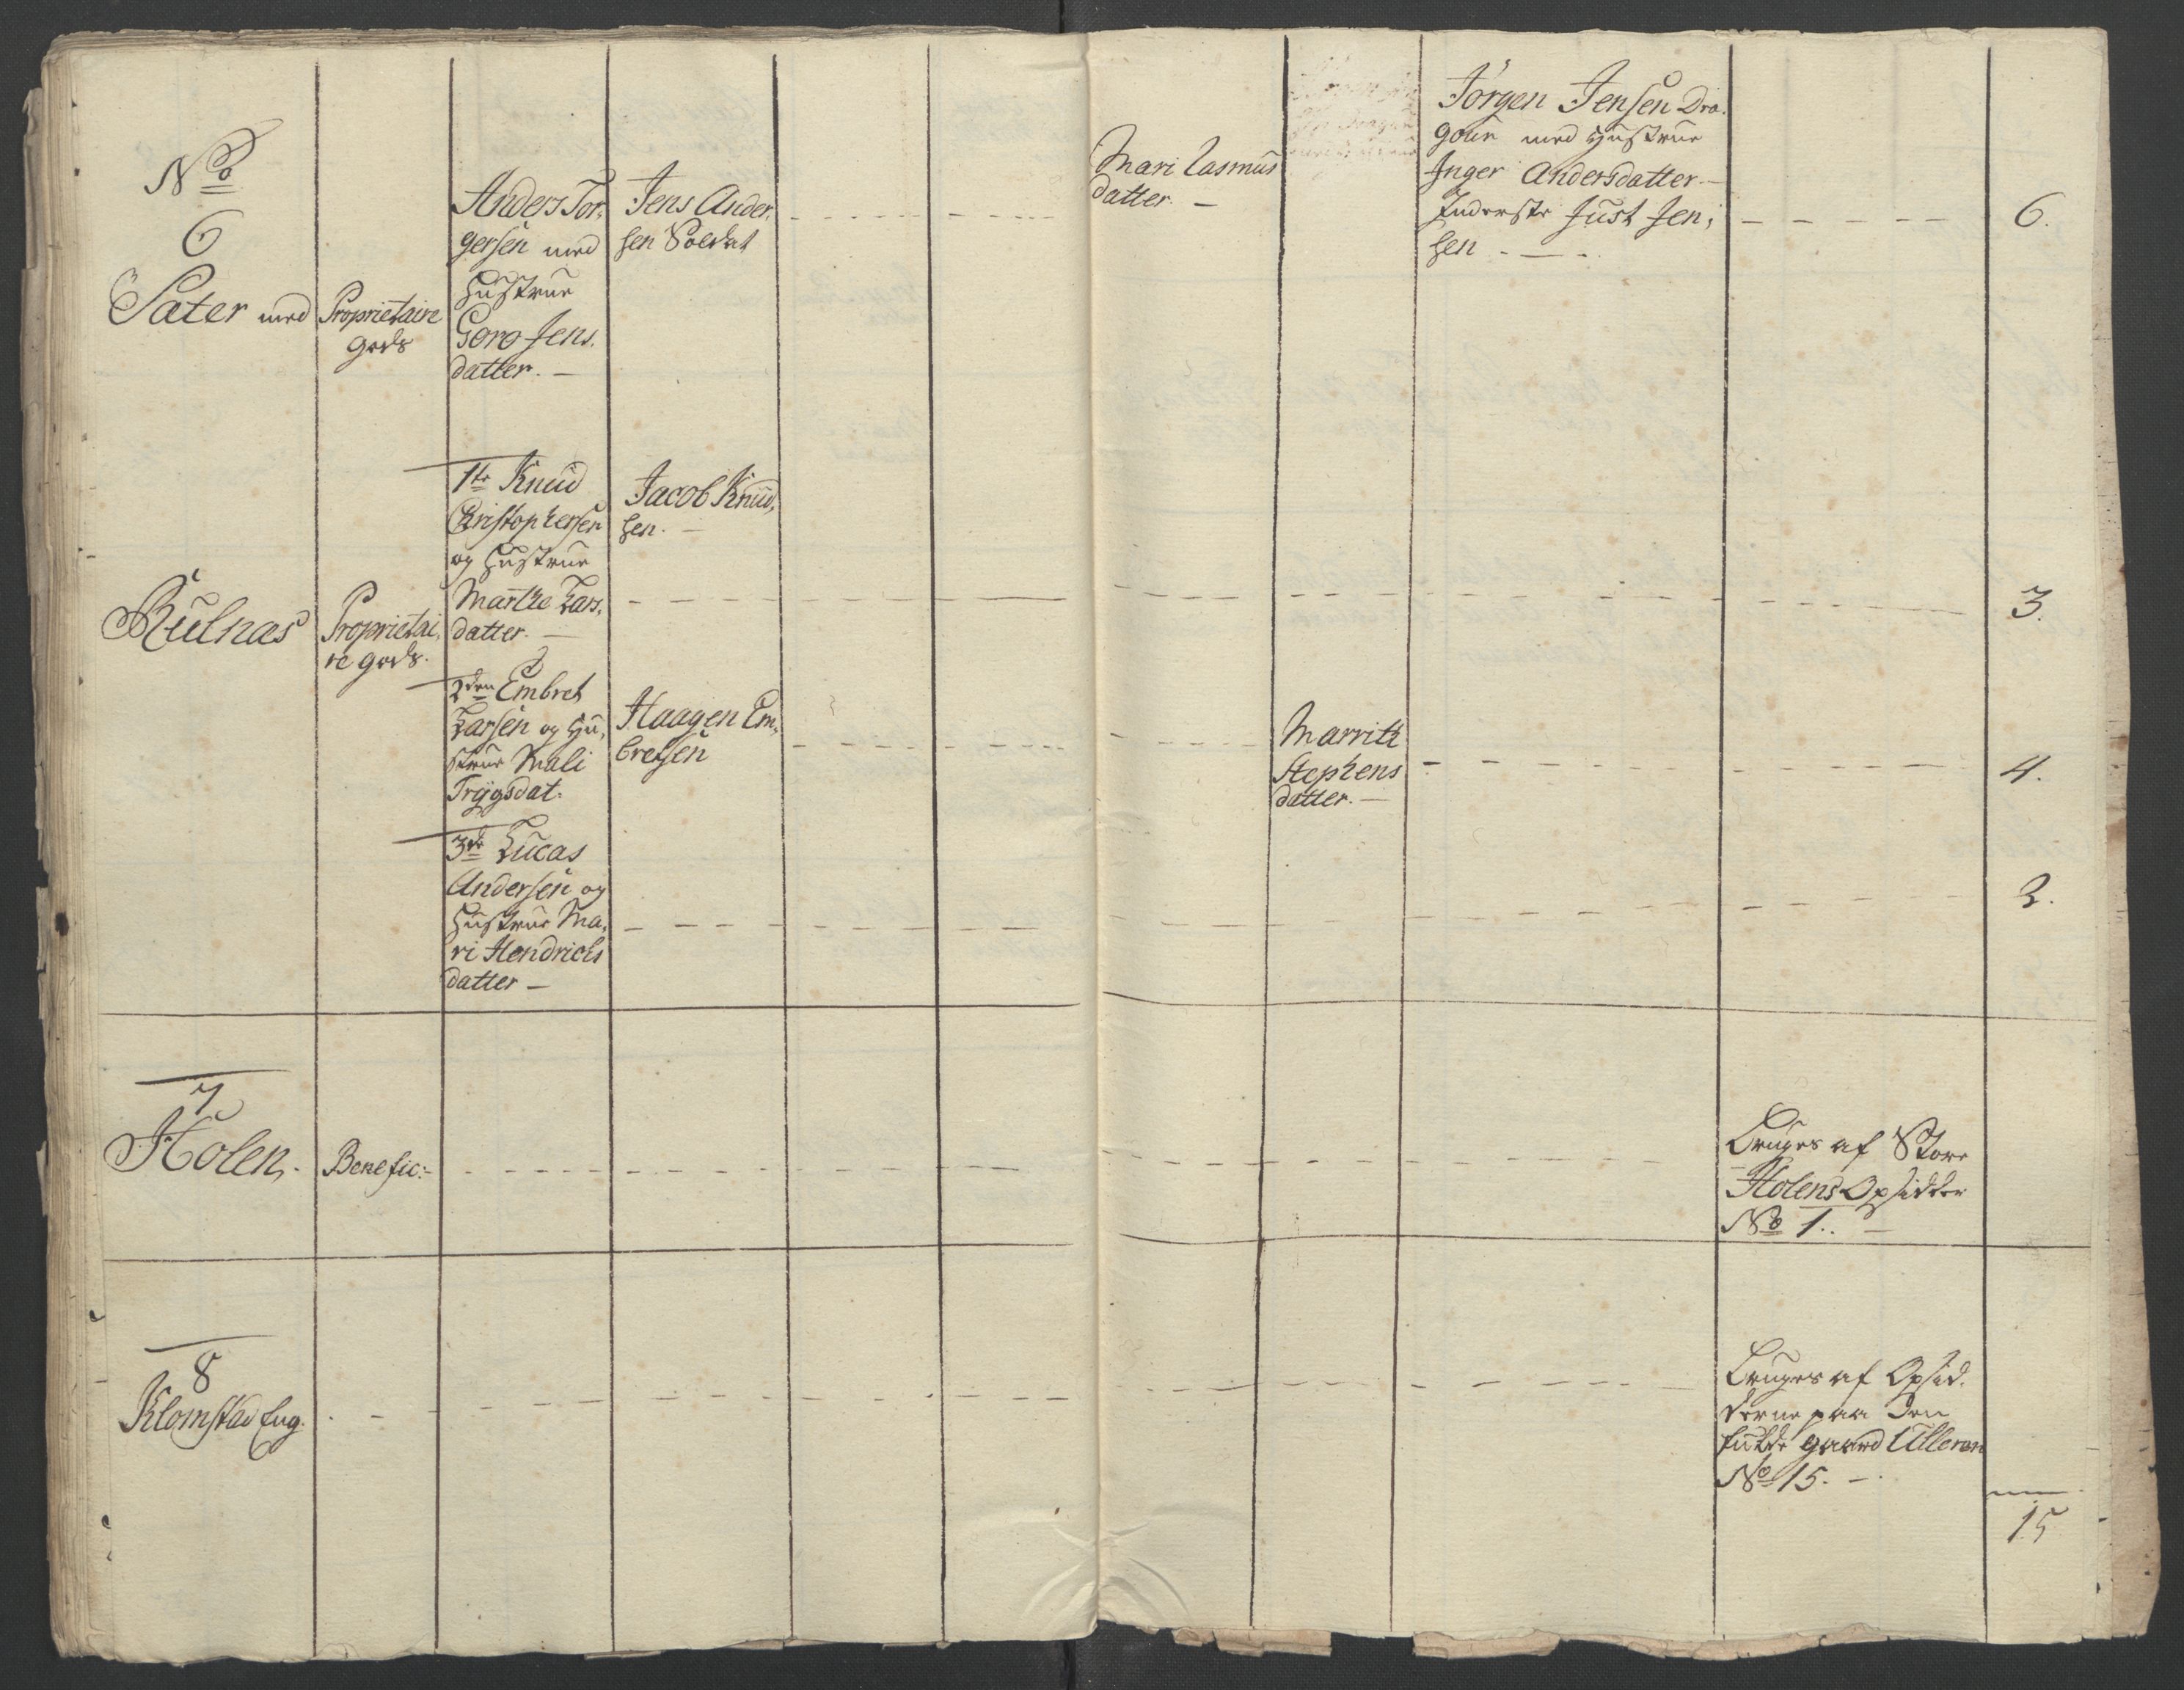 No
6
Sater med
Proprietaire
gods
Anders Tor,
gersen med
Hustrue
Goro Jens,
datter. —
Jens Ander,
sen Soldat
Mari Rasmus
datter. —
Jørgen Jensen Dra,
goun med Hustrue
Inger Andersdatter. —
Inderste Just Jen,
sen
6.
Kulnas
Proprietai,
re gods.
1te Knud
Christophersen
og Hustrue
Marthe Lars,
datter. —
Jacob Knud,
sen. —
3.
2den Embret
Larsen og Hu,
strue Mali
Trygsdat:
Haagen Em,
bretsen
Marrith
Stephens
datter. —
4.
3de Lucas
Andersen og
Hustrue Ma,
ri Hendrichs
datter —
2.
7
Holen.
Benefic:
Bruges af Store
Holens Opsidder
No 1. —
8
Klomstad Eng.
Bruges af Opsid,
derne paa den
fulde gaard Ulleren
No 15. —
15